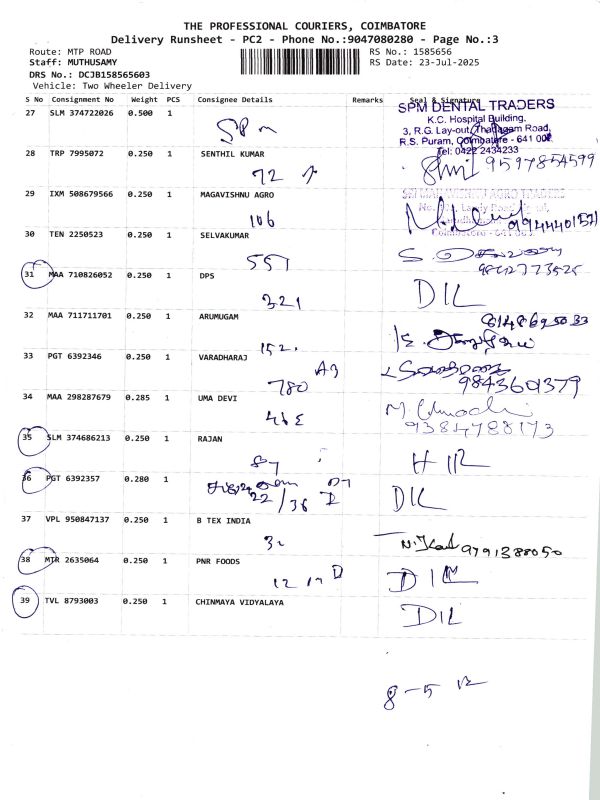 THE PROFESSIONAL COURIERS, COIMBATORE
Delivery Runsheet - PC2 - Phone No.:9047080280 - Page No.:3
Route: MTP ROAD RS No.: 1585656
Staff: MUTHUSAMY RS Date: 23-Jul-2025
DRS No.: DCJB158565603
Vehicle: Two Wheeler Delivery
S No Consignment No Weight PCS Consignee Details Remarks Seal & Signature
27 SLM 374722026 0.500 1
SPM
SPM DENTAL TRADERS
K.C. Hospital Building,
3, R.G. Lay-out, Thadagam Road,
R.S. Puram, Coimbatore - 641 002
Tel: 0422 2434233
28 TRP 7995072 0.250 1 SENTHIL KUMAR
72 9597854599
29 IXM 508679566 0.250 1 MAGAVISHNU AGRO
AGRO TRADERS
106
30 TEN 2250523 0.250 1 SELVAKUMAR
557
31 MAA 710826052 0.250 1 DPS
321 DIL
32 MAA 711711701 0.250 1 ARUMUGAM
152
33 PGT 6392346 0.250 1 VARADHARAJ
780 9843601379
34 MAA 298287679 0.285 1 UMA DEVI
9384788173
35 SLM 374686213 0.250 1 RAJAN
87
36 PGT 6392357 0.280 1
22/36 DIL
37 VPL 950847137 0.250 1 B TEX INDIA
9791388050
38 MTR 2635064 0.250 1 PNR FOODS
DIL
39 TVL 8793003 0.250 1 CHINMAYA VIDYALAYA
DIL